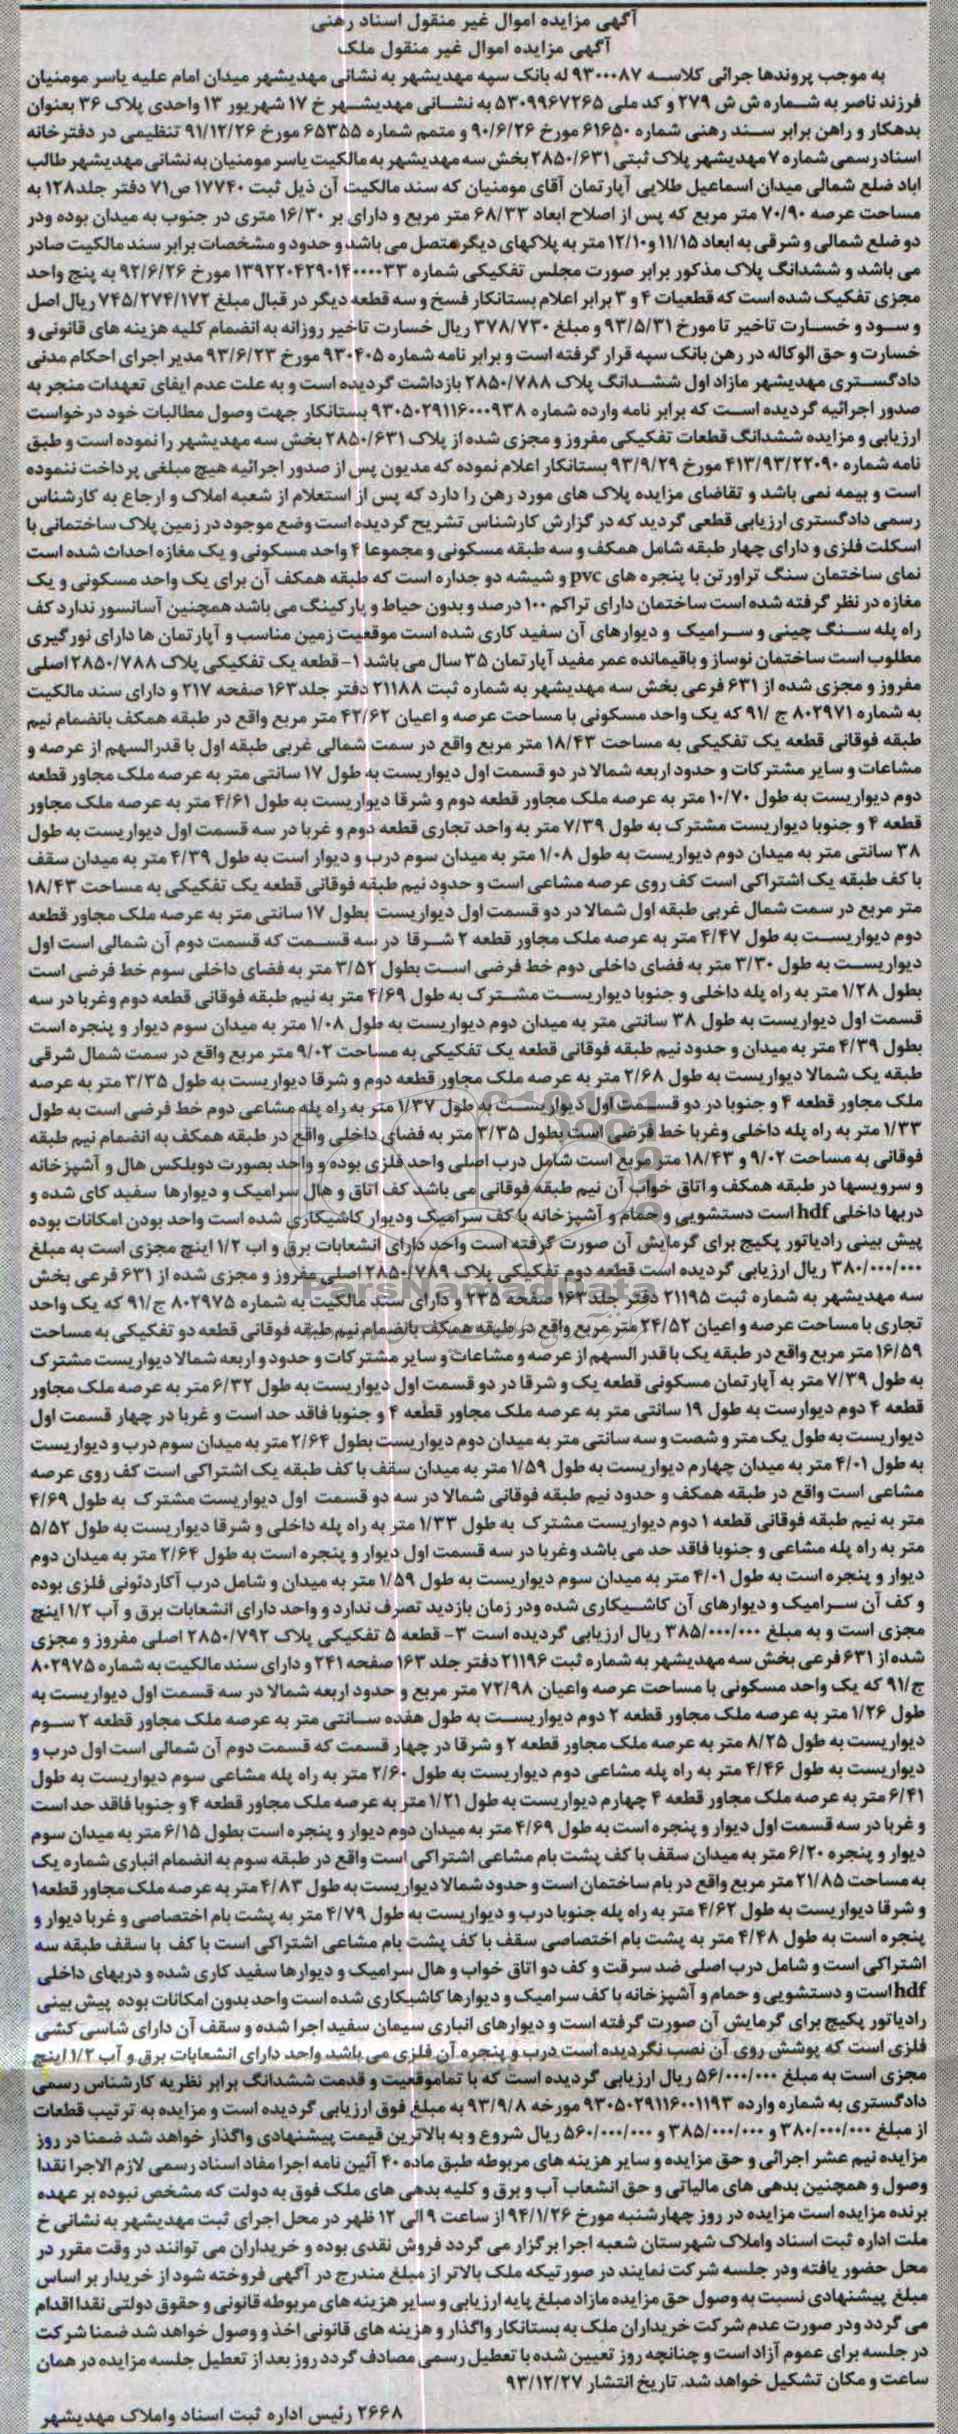 آگهی مزایده اموال غیر منقول اسناد رهنی
آگهی مزایده اموال غیر منقول ملک
به موجب پروندها جرائی کلاسه ۹۳۰۰۰۸۷ له بانک سپه مهدیشهر به نشانی مهدیشهر میدان امام علیه یاسر مومنیان
فرزند ناصر به شماره ش ش ۲۷۹ و کد ملی ۵۳۰۹۹۶۷۲۶۵ به نشانی مهدیشهر خ ۱۷ شهریور ۱۳ واحدی پلاک ۳۶ بعنوان
بدهکار و راهن برابر سند رهنی شماره ۶۱۶۵۰ مورخ ۹۰/۶/۲۶ و متمم شماره ۶۵۳۵۵ مورخ ۹۱/۱۲/۲۶ تنظیمی در دفترخانه
اسناد رسمی شماره ۷ مهدیشهر پلاک ثبتی ۲۸۵۰/۶۳۱ بخش سه مهدیشهر به مالکیت یاسر مومنیان به نشانی مهدیشهر طالب
اباد ضلع شمالی میدان اسماعیل طلایی آپارتمان آقای مومنیان که سند مالکیت آن ذیل ثبت ۱۷۷۴۰ ص۷۱ دفتر جلد۱۲۸ به
مساحت عرصه ۷۰/۹۰ متر مربع که پس از اصلاح ابعاد ۶۸/۳۳ متر مربع و دارای بر ۱۶/۳۰ متری در جنوب به میدان بوده ودر
دو ضلع شمالی و شرقی به ابعاد ۱۱/۱۵ و۱۲/۱۰ متر به پلاکهای دیگر متصل می باشد و حدود و مشخصات برابر سند مالکیت صادر
می باشد و ششدانگ پلاک مذکور برابر صورت مجلس تفکیکی شماره ۱۳۹۲۲۰۴۲۹۰۱۴۰۰۰۰۳۳ مورخ ۹۲/۶/۲۶ به پنج واحد
مجزی تفکیک شده است که قطعیات ۴ و ۳ برابر اعلام بستانکار فسخ و سه قطعه دیگر در قبال مبلغ ۷۴۵/۲۷۴/۱۷۲ ریال اصل
و سود و خسارت تاخیر تا مورخ ۹۳/۵/۳۱ و مبلغ ۳۷۸/۷۳۰ ریال خسارت تاخیر روزانه به انضمام کلیه هزینه های قانونی و
خسارت و حق الوکاله در رهن بانک سپه قرار گرفته است و برابر نامه شماره ۹۳۰۴۰۵ مورخ ۹۳/۶/۲۳ مدیر اجرای احکام مدنی
دادگستری مهدیشهر مازاد اول ششدانگ پلاک ۲۸۵۰/۷۸۸ بازداشت گردیده است و به علت عدم ایفای تعهدات منجر به
صدور اجرائیه گردیده است که برابر نامه وارده شماره ۹۳۰۵۰۲۹۱۱۶۰۰۰۹۳۸ بستانکار جهت وصول مطالبات خود درخواست
ارزیابی و مزایده ششدانگ قطعات تفکیکی مفروز و مجزی شده از پلاک ۲۸۵۰/۶۳۱ بخش سه مهدیشهر را نموده است و طبق
نامه شماره ۴۱۳/۹۳/۲۲۰۹۰ مورخ ۹۳/۹/۲۹ بستانکار اعلام نموده که مدیون پس از صدور اجرائیه هیچ مبلغی پرداخت ننموده
است و بیمه نمی باشد و تقاضای مزایده پلاک های مورد رهن را دارد که پس از استعلام از شعبه املاک و ارجاع به کارشناس
رسمی دادگستری ارزیابی قطعی گردید که در گزارش کارشناس تشریح گردیده است وضع موجود در زمین پلاک ساختمانی با
اسکلت فلزی و دارای چهار طبقه شامل همکف و سه طبقه مسکونی و مجموعا ۴ واحد مسکونی و یک مغازه احداث شده است
نمای ساختمان سنگ تراورتن با پنجره های pvc و شیشه دو جداره است که طبقه همکف آن برای یک واحد مسکونی و یک
مغازه در نظر گرفته شده است ساختمان دارای تراکم ۱۰۰ درصد و بدون حیاط و پارکینگ می باشد همچنین آسانسور ندارد کف
راه پله سنگ چینی و سرامیک و دیوارهای آن سفید کاری شده است موقعیت زمین مناسب و آپارتمان ها دارای نورگیری
مطلوب است ساختمان نوساز و باقیمانده عمر مفید آپارتمان ۳۵ سال می باشد ۱- قطعه یک تفکیکی پلاک ۲۸۵۰/۷۸۸ اصلی
مفروز و مجزی شده از ۶۳۱ فرعی بخش سه مهدیشهر به شماره ثبت ۲۱۱۸۸ دفتر جلد ۱۶۳ صفحه ۲۱۷ و دارای سند مالکیت
به شماره ۸۰۲۹۷۱ ج /۹۱ که یک واحد مسکونی با مساحت عرصه و اعیان ۴۲/۶۲ متر مربع واقع در طبقه همکف بانضمام نیم
طبقه فوقانی قطعه یک تفکیکی به مساحت ۱۸/۴۳ متر مربع واقع در سمت شمالی غربی طبقه اول با قدرالسهم از عرصه و
مشاعات و سایر مشترکات و حدود اربعه شمالا در دو قسمت اول دیواریست به طول ۱۷ سانتی متر به عرصه ملک مجاور قطعه
دوم دیواریست به طول ۱۰/۷۰ متر به عرصه ملک مجاور قطعه دوم و شرقا دیواریست به طول ۴/۶۱ متر به عرصه ملک مجاور
قطعه ۴ و جنوبا دیواریست مشترک به طول ۷/۳۹ متر به واحد تجاری قطعه دوم و غربا در سه قسمت اول دیواریست به طول
۳۸ سانتی متر به میدان دوم دیواریست به طول ۱/۰۸ متر به میدان سوم درب و دیوار است به طول ۴/۳۹ متر به میدان سقف
با کف طبقه یک اشتراکی است کف روی عرصه مشاعی است و حدود نیم طبقه فوقانی قطعه یک تفکیکی به مساحت ۱۸/۴۳
متر مربع در سمت شمال غربی طبقه اول شمالا در دو قسمت اول دیواریست بطول ۱۷ سانتی متر به عرصه ملک مجاور قطعه
دوم دیواریست به طول ۴/۴۷ متر به عرصه ملک مجاور قطعه ۲ شرقا در سه قسمت که قسمت دوم آن شمالی است اول
دیواریست به طول ۳/۳۰ متر به فضای داخلی دوم خط فرضی است بطول ۳/۵۲ متر به فضای داخلی سوم خط فرضی است
بطول ۱/۲۸ متر به راه پله داخلی و جنوبا دیواریست مشترک به طول ۴/۶۹ متر به نیم طبقه فوقانی قطعه دوم وغربا در سه
قسمت اول دیواریست به طول ۳۸ سانتی متر به میدان دوم دیواریست به طول ۱/۰۸ متر به میدان سوم دیوار و پنجره است
بطول ۴/۳۹ متر به میدان و حدود نیم طبقه فوقانی قطعه یک تفکیکی به مساحت ۹/۰۲ متر مربع واقع در سمت شمال شرقی
طبقه یک شمالا دیواریست به طول ۲/۶۸ متر به عرصه ملک مجاور قطعه دوم و شرقا دیواریست به طول ۳/۳۵ متر به عرصه
ملک مجاور قطعه ۴ و جنوبا در دو قسمت اول دیواریست به طول ۱/۳۷ متر به راه پله مشاعی دوم خط فرضی است به طول
۱/۳۳ متر به راه پله داخلی وغربا خط فرضی است بطول ۳/۳۵ متر به فضای داخلی واقع در طبقه همکف به انضمام نیم طبقه
فوقانی به مساحت ۹/۰۲ و ۱۸/۴۳ متر مربع است شامل درب اصلی واحد فلزی بوده و واحد بصورت دوبلکس هال و آشپزخانه
و سرویسها در طبقه همکف و اتاق خواب آن نیم طبقه فوقانی می باشد کف اتاق و هال سرامیک و دیوارها سفید کای شده و
دربها داخلی hdf است دستشویی و حمام و آشپزخانه با کف سرامیک ودیوار کاشیکاری شده است واحد بودن امکانات بوده
پیش بینی رادیاتور پکیج برای گرمایش آن صورت گرفته است واحد دارای انشعابات برق و اب ۱/۲ اینچ مجزی است به مبلغ
۳۸۰/۰۰۰/۰۰۰ ریال ارزیابی گردیده است قطعه دوم تفکیکی پلاک ۲۸۵۰/۷۸۹ اصلی مفروز و مجزی شده از ۶۳۱ فرعی بخش
سه مهدیشهر به شماره ثبت ۲۱۱۹۵ دفتر جلد ۱۶۳ صفحه ۲۳۵ و دارای سند مالکیت به شماره ۸۰۲۹۷۵ ج/۹۱ که یک واحد
تجاری با مساحت عرصه و اعیان ۲۴/۵۲ متر مربع واقع در طبقه همکف بانضمام نیم طبقه فوقانی قطعه دو تفکیکی به مساحت
۱۶/۵۹ متر مربع واقع در طبقه یک با قدر السهم از عرصه و مشاعات و سایر مشترکات و حدود و اربعه شمالا دیواریست مشترک
به طول ۷/۳۹ متر به آپارتمان مسکونی قطعه یک و شرقا در دو قسمت اول دیواریست به طول ۶/۳۲ متر به عرصه ملک مجاور
قطعه ۴ دوم دیوارست به طول ۱۹ سانتی متر به عرصه ملک مجاور قطعه ۴ و جنوبا فاقد حد است و غربا در چهار قسمت اول
دیواریست به طول یک متر و شصت و سه سانتی متر به میدان دوم دیواریست بطول ۲/۶۴ متر به میدان سوم درب و دیواریست
به طول ۴/۰۱ متر به میدان چهارم دیواریست به طول ۱/۵۹ متر به میدان سقف با کف طبقه یک اشتراکی است کف روی عرصه
مشاعی است واقع در طبقه همکف و حدود نیم طبقه فوقانی شمالا در سه دو قسمت اول دیواریست مشترک به طول ۴/۶۹
متر به نیم طبقه فوقانی قطعه ۱ دوم دیواریست مشترک به طول ۱/۳۳ متر به راه پله داخلی و شرقا دیواریست به طول ۵/۵۲
متر به راه پله مشاعی و جنوبا فاقد حد می باشد وغربا در سه قسمت اول دیوار و پنجره است به طول ۲/۶۴ متر به میدان دوم
دیوار و پنجره است به طول ۴/۰۱ متر به میدان سوم دیواریست به طول ۱/۵۹ متر به میدان و شامل درب آکاردئونی فلزی بوده
و کف آن سرامیک و دیوارهای آن کاشیکاری شده ودر زمان بازدید تصرف ندارد و واحد دارای انشعابات برق و آب ۱/۲ اینچ
مجزی است و به مبلغ ۳۸۵/۰۰۰/۰۰۰ ریال ارزیابی گردیده است ۳- قطعه ۵ تفکیکی پلاک ۲۸۵۰/۷۹۲ اصلی مفروز و مجزی
شده از ۶۳۱ فرعی بخش سه مهدیشهر به شماره ثبت ۲۱۱۹۶ دفتر جلد ۱۶۳ صفحه ۲۴۱ و دارای سند مالکیت به شماره ۸۰۲۹۷۵
ج/۹۱ که یک واحد مسکونی با مساحت عرصه واعیان ۷۲/۹۸ متر مربع و حدود اربعه شمالا در سه قسمت اول دیواریست به
طول ۱/۲۶ متر به عرصه ملک مجاور قطعه ۲ دوم دیواریست به طول هفده سانتی متر به عرصه ملک مجاور قطعه ۲ سوم
دیواریست به طول ۸/۲۵ متر به عرصه ملک مجاور قطعه ۲ و شرقا در چهار قسمت که قسمت دوم آن شمالی است اول درب و
دیواریست به طول ۴/۴۶ متر به راه پله مشاعی دوم دیواریست به طول ۲/۶۰ متر به راه پله مشاعی سوم دیواریست به طول
۶/۴۱ متر به عرصه ملک مجاور قطعه ۴ چهارم دیواریست به طول ۱/۲۱ متر به عرصه ملک مجاور قطعه ۴ و جنوبا فاقد حد است
و غربا در سه قسمت اول دیوار و پنجره است به طول ۴/۶۹ متر به میدان دوم دیوار و پنجره است بطول ۶/۱۵ متر به میدان سوم
دیوار و پنجره ۶/۲۰ متر به میدان سقف با کف پشت بام مشاعی اشتراکی است واقع در طبقه سوم به انضمام انباری شماره یک
به مساحت ۲۱/۸۵ متر مربع واقع در بام ساختمان است و حدود شمالا دیواریست به طول ۴/۸۳ متر به عرصه ملک مجاور قطعه۱
و شرقا دیواریست به طول ۴/۶۲ متر به راه پله جنوبا درب و دیواریست به طول ۴/۷۹ متر به پشت بام اختصاصی و غربا دیوار و
پنجره است به طول ۴/۴۸ متر به پشت بام اختصاصی سقف با کف پشت بام مشاعی اشتراکی است با کف با سقف طبقه سه
اشتراکی است و شامل درب اصلی ضد سرقت و کف دو اتاق خواب و هال سرامیک و دیوارها سفید کاری شده و دربهای داخلی
hdf است و دستشویی و حمام و آشپزخانه با کف سرامیک و دیوارها کاشیکاری شده است واحد بدون امکانات بوده پیش بینی
رادیاتور پکیج برای گرمایش آن صورت گرفته است و دیوارهای انباری سیمان سفید اجرا شده و سقف آن دارای شاسی کشی
فلزی است که پوشش روی آن نصب نگردیده است درب و پنجره آن فلزی می باشد واحد دارای انشعابات برق و آب ۱/۲ اینچ
مجزی است به مبلغ ۵۶/۰۰۰/۰۰۰ ریال ارزیابی گردیده است که با تماموقعیت و قدمت ششدانگ برابر نظریه کارشناس رسمی
دادگستری به شماره وارده ۹۳۰۵۰۲۹۱۱۶۰۰۱۱۹۳ مورخه ۹۳/۹/۸ به مبلغ فوق ارزیابی گردیده است و مزایده به ترتیب قطعات
از مبلغ ۳۸۰/۰۰۰/۰۰۰ و ۳۸۵/۰۰۰/۰۰۰ و ۵۶۰/۰۰۰/۰۰۰ ریال شروع و به بالاترین قیمت پیشنهادی واگذار خواهد شد ضمنا در روز
مزایده نیم عشر اجرائی و حق مزایده و سایر هزینه های مربوطه طبق ماده ۴۰ آئین نامه اجرا مفاد اسناد رسمی لازم الاجرا نقدا
وصول و همچنین بدهی های مالیاتی و حق انشعاب آب و برق و کلیه بدهی های ملک فوق به دولت که مشخص نبوده بر عهده
برنده مزایده است مزایده در روز چهارشنبه مورخ ۹۴/۱/۲۶ از ساعت ۹ الی ۱۲ ظهر در محل اجرای ثبت مهدیشهر به نشانی خ
ملت اداره ثبت اسناد واملاک شهرستان شعبه اجرا برگزار می گردد فروش نقدی بوده و خریداران می توانند در وقت مقرر در
محل حضور یافته ودر جلسه شرکت نمایند در صورتیکه ملک بالاتر از مبلغ مندرج در آگهی فروخته شود از خریدار بر اساس
مبلغ پیشنهادی نسبت به وصول حق مزایده مازاد مبلغ پایه ارزیابی و سایر هزینه های مربوطه قانونی و حقوق دولتی نقدا اقدام
می گردد ودر صورت عدم شرکت خریداران ملک به بستانکار واگذار و هزینه های قانونی اخذ و وصول خواهد شد ضمنا شرکت
در جلسه برای عموم آزاد است و چنانچه روز تعیین شده با تعطیل رسمی مصادف گردد روز بعد از تعطیل جلسه مزایده در همان
ساعت و مکان تشکیل خواهد شد. تاریخ انتشار ۹۳/۱۲/۲۷
۲۶۶۸ رئیس اداره ثبت اسناد واملاک مهدیشهر
ParsNamadData